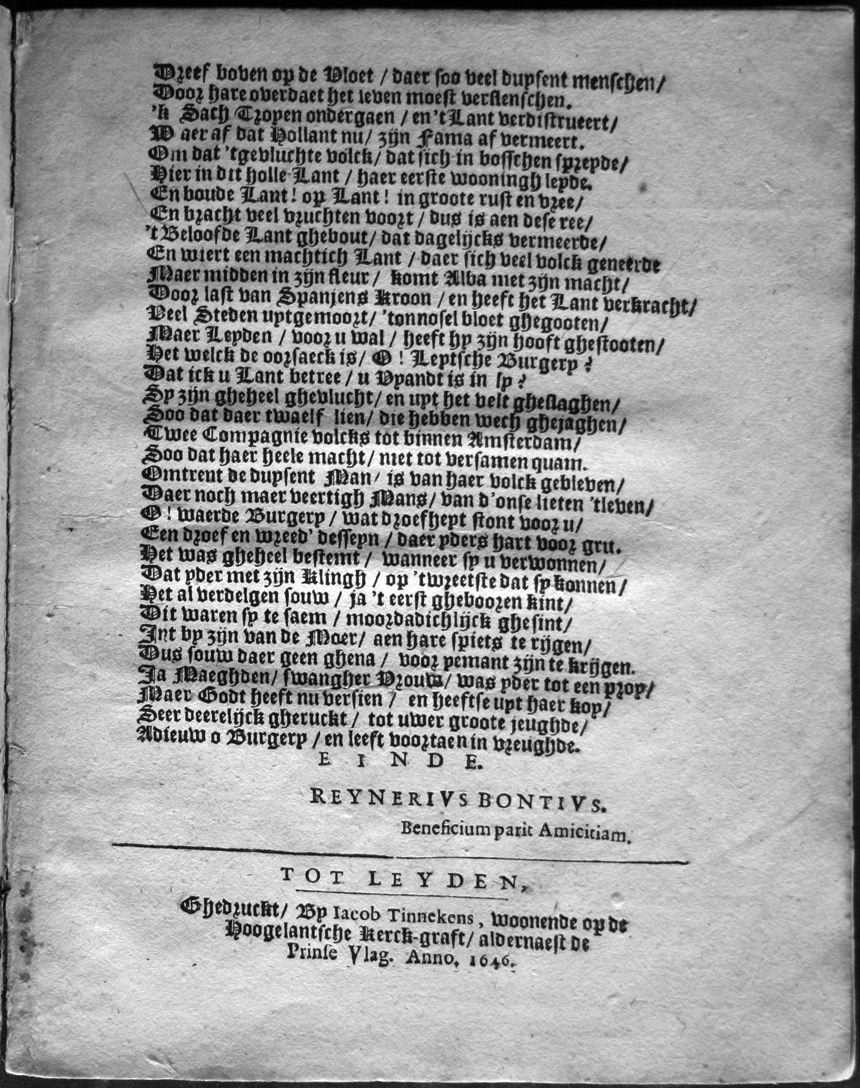 Dreef boven op de Vloet / daer soo veel duysent menschen /
Door hare overdaet het leven moest verslenschen.
'k Sach Tropen ondergaen / en 't Lant verdistrueert /
Waer af dat Hollant nu / zijn Fama af vermeert.
Om dat 'tgevluchte volck / dat sich in bosschen spreyde /
Hier in dit holle Lant / haer eerste wooningh leyde.
En boude Lant! op Lant! in groote rust en vree /
En bracht veel vruchten voort / dus is aen dese ree /
't Beloofde Lant ghebout / dat dagelijcks vermeerde /
En wiert een machtich Lant / daer sich veel volck geneerde
Maer midden in zijn fleur / komt Alba met zijn macht /
Door last van Spanjens Kroon / en heeft het Lant verkracht /
Veel Steden uytgemoort / 'tonnosel bloet ghegooten /
Maer Leyden / voor u wal / heeft hy zijn hooft ghestooten /
Het welck de oorsaeck is / O! Leytsche Burgery?
Dat ick u Lant betree / u Vyandt is in ly?
Sy zijn gheheel ghevlucht / en uyt het velt gheslaghen /
Soo dat daer twaelf lien / die hebben wech ghejaghen /
Twee Compagnie volcks tot binnen Amsterdam /
Soo dat haer heele macht / niet tot versamen quam.
Omtrent de duysent Man / is van haer volck gebleven /
Daer noch maer veertigh Mans / van d'onse lieten 'tleven /
O! waerde Burgery / wat droefheyt stont voor u /
Een droef en wreed' desseyn / daer yders hart voor gru.
Het was gheheel bestemt / wanneer sy u verwonnen /
Dat yder met zijn Klingh / op 'twreetste dat sy konnen /
Het al verdelgen souw / ja 't eerst ghebooren kint /
Dit waren sy te saem / moordadichlijck ghesint /
Int by zijn van de Moer / aen hare spiets te rijgen /
Dus souw daer geen ghena / voor yemant zijn te krijgen.
Ja Maeghden / swangher Vrouw / was yder tot een prop /
Maer Godt heeft nu versien / en heeftse uyt haer kop /
Seer deerelijck gheruckt / tot uwer groote jeughde /
Adieuw o Burgery / en leeft voortaen in vreughde.
EINDE.
REYNERIVS BONTIVS.
Beneficium parit Amicitiam.
TOT LEYDEN,
Ghedruckt / By Iacob Tinnekens, woonende op de
Hoogelantsche Kerck-graft / aldernaest de
Prinse Vlag. Anno. 1646.